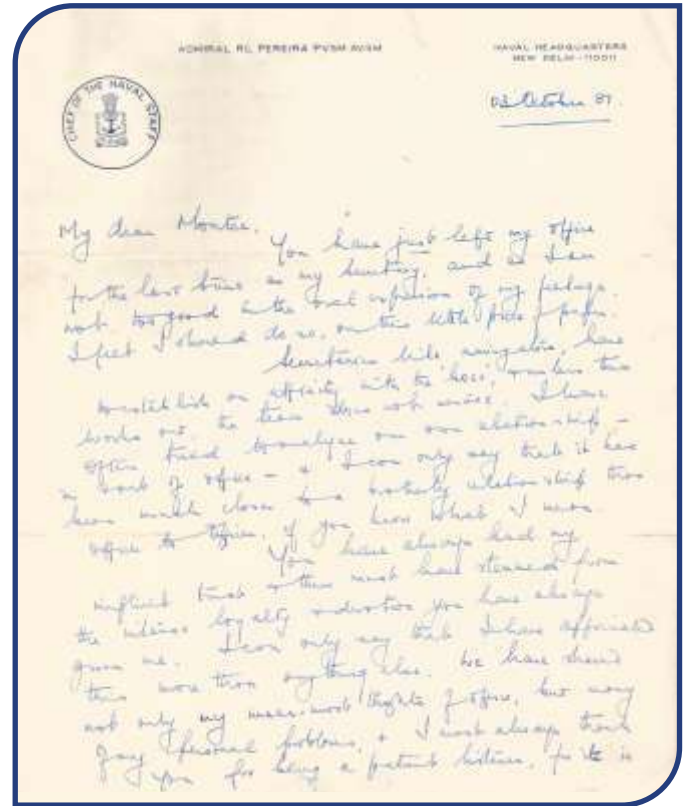 ADMIRAL RL PEREIRA PVSM AVSM
NAVAL HEADQUARTERS
NEW DELHI-110011
CHIEF OF THE NAVAL STAFF
03 October 81.
My dear
You have just left my office
for the last time as my Secretary, and as I am
not too good in the oral expression of my feelings
I feel I should do so, on this little piece of paper.
Secretaries like navigators, have
to establish an affinity with the 'boss', unless this
works out the team does not. I have
often tried to analyse our own relationship -
in and of office - & I can only say that it has
been much closer to a brotherly relationship than
officer to officer, if you know what I mean.
You have always had my
implicit trust & this must have stemmed from
the intense loyalty you have always
given me. I can only say that I have appreciated
this more than anything else. We have shared
not only my thoughts of office, but many
of my personal problems, & I must always thank
you for being a patient listener, for it is